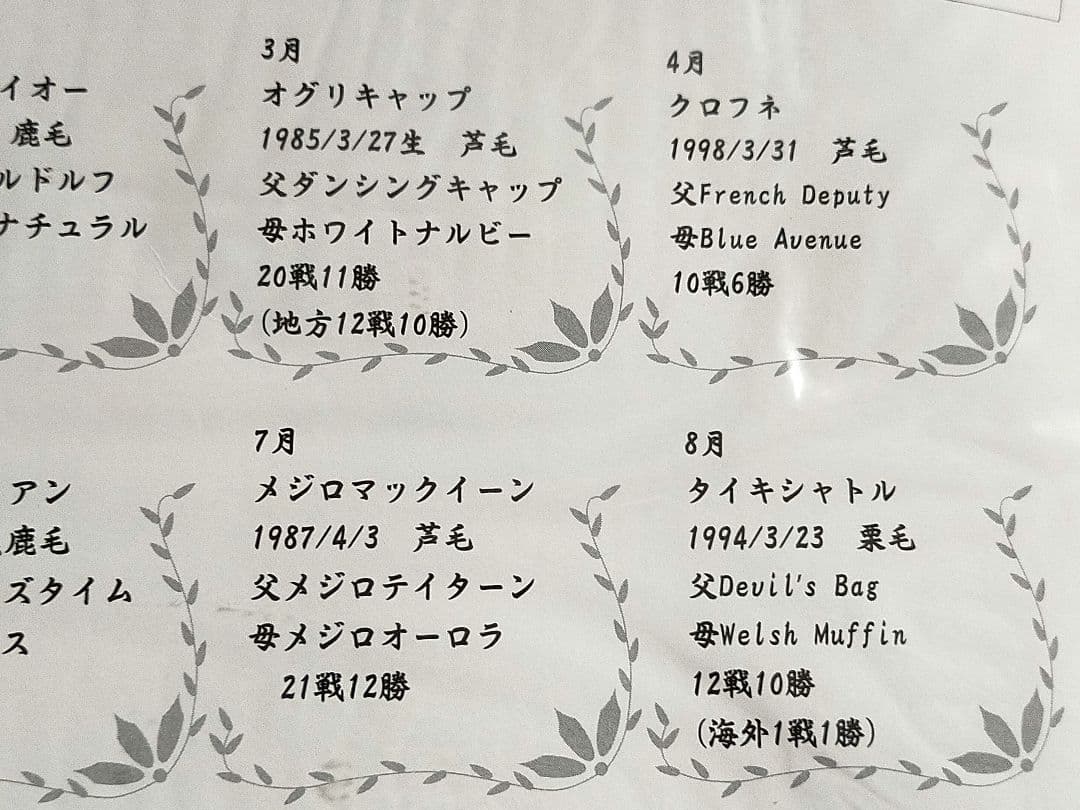 イオー
鹿毛
ルドルフ
ナチュラル
3月
オグリキャップ
1985/3/27生 芦毛
父ダンシングキャップ
母ホワイトナルビー
20戦11勝
(地方12戦10勝)
4月
クロフネ
1998/3/31 芦毛
父French Deputy
母Blue Avenue
10戦6勝
アン
鹿毛
ズタイム
ス
7月
メジロマックイーン
1987/4/3 芦毛
父メジロテイターン
母メジロオーロラ
21戦12勝
8月
タイキシャトル
1994/3/23 栗毛
父Devil's Bag
母Welsh Muffin
12戦10勝
(海外1戦1勝)